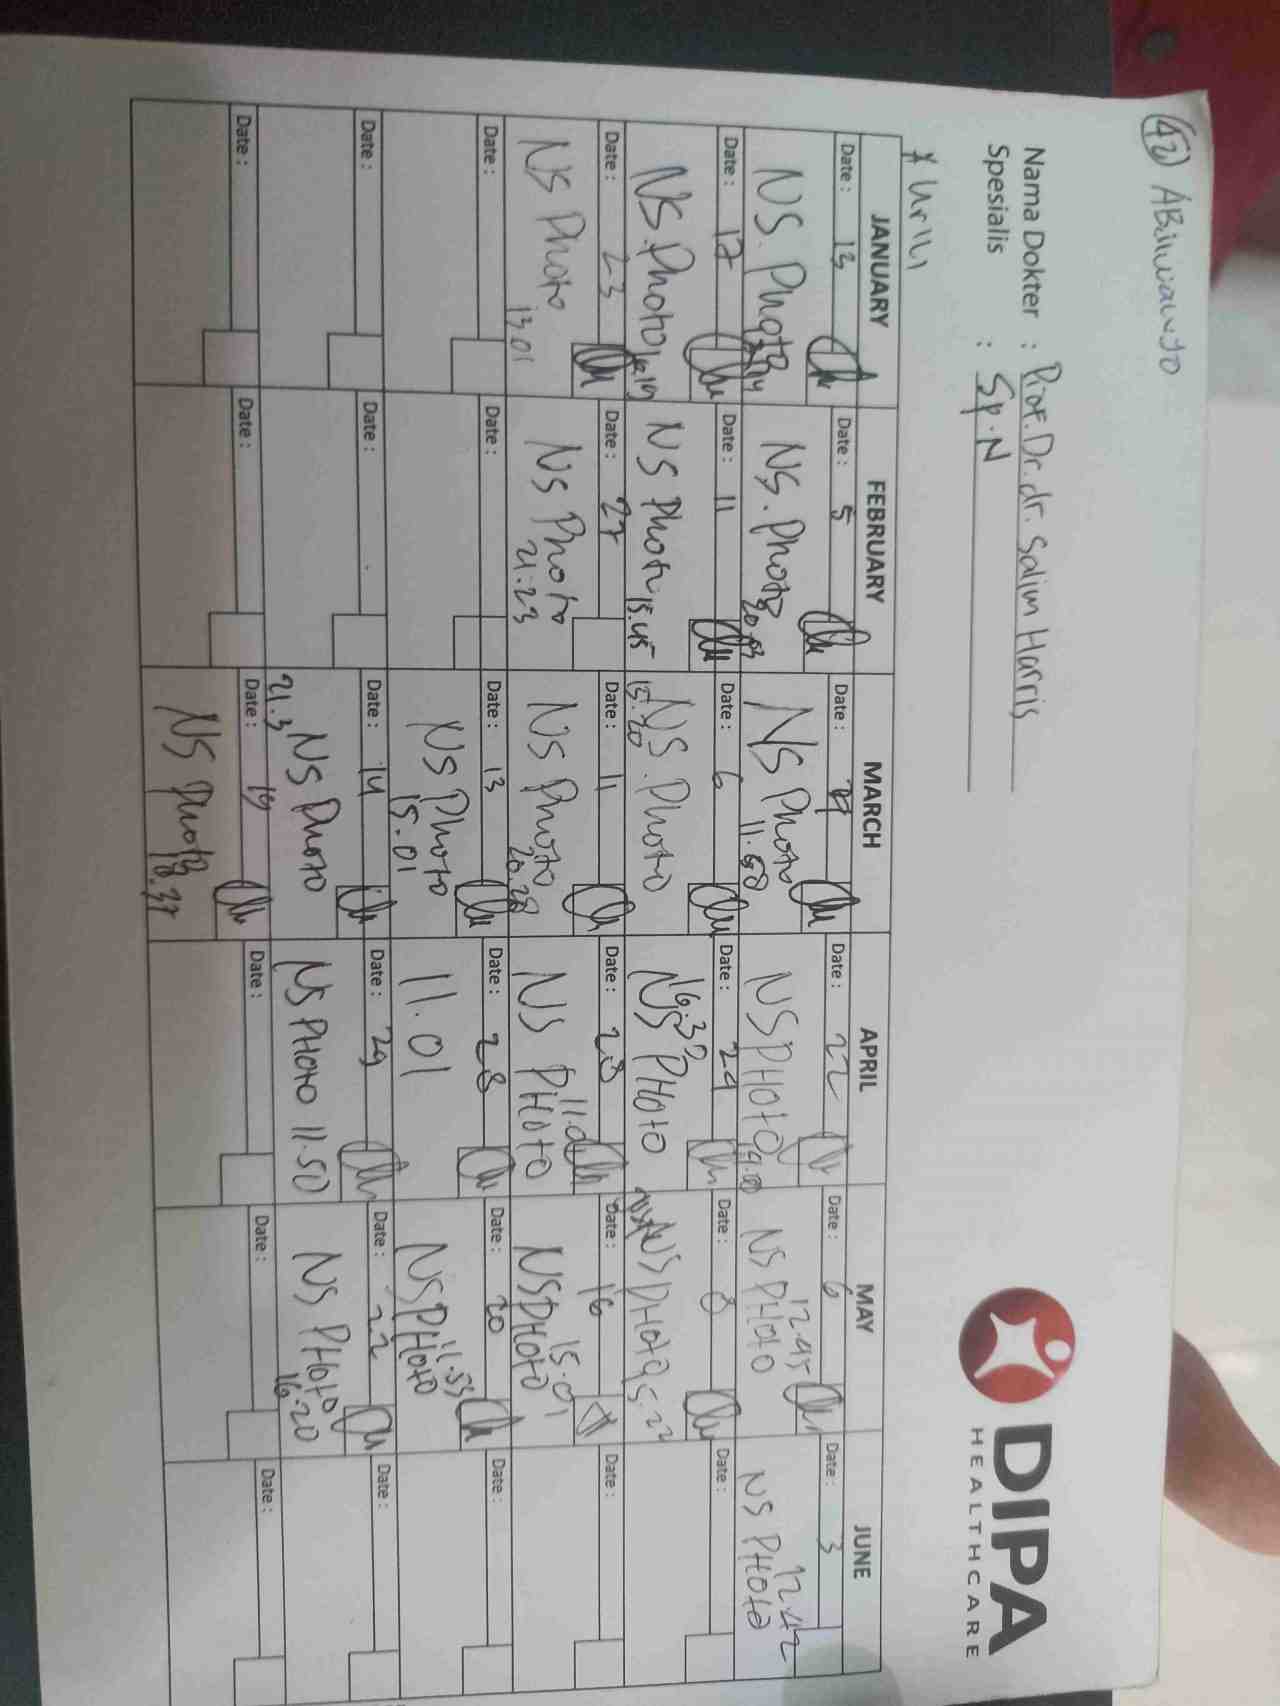 42 ABimanyo
DIPA
HEALTHCARE
Nama Dokter : Prof. Dr. dr. Salim Harris
Spesialis : Sp.N
JANUARY FEBRUARY MARCH APRIL MAY JUNE
Date : 13 Date : 5 Date : Date : 22 Date : 6 Date : 3
NS. Photo NS. Photo 20.03 NS Photo NS PHoto NS PHoto 12.45 NS PHoto 12.42
Date : 17 Date : 11 Date : 6 Date : 24 Date : 8 Date :
NS. Photo NS Photo 15.45 NS. Photo 15.20 NS PHoto NS PHoto
Date : 23 Date : 27 Date : 11 Date : 28 Date : 16 Date :
NS Photo 13.01 NS Photo 21.23 NS Photo 20.28 NS PHoto NS PHoto 15.01
Date : Date : Date : 13 Date : 28 Date : 20 Date :
NS Photo 15.01 11.01 NS PHoto 11.53
Date : Date : Date : 14 Date : 29 Date : 22 Date :
NS Photo NS PHoto 11.50 NS PHoto 16.20
Date : Date : Date : 19 Date : Date : Date :
NS Photo 18.37